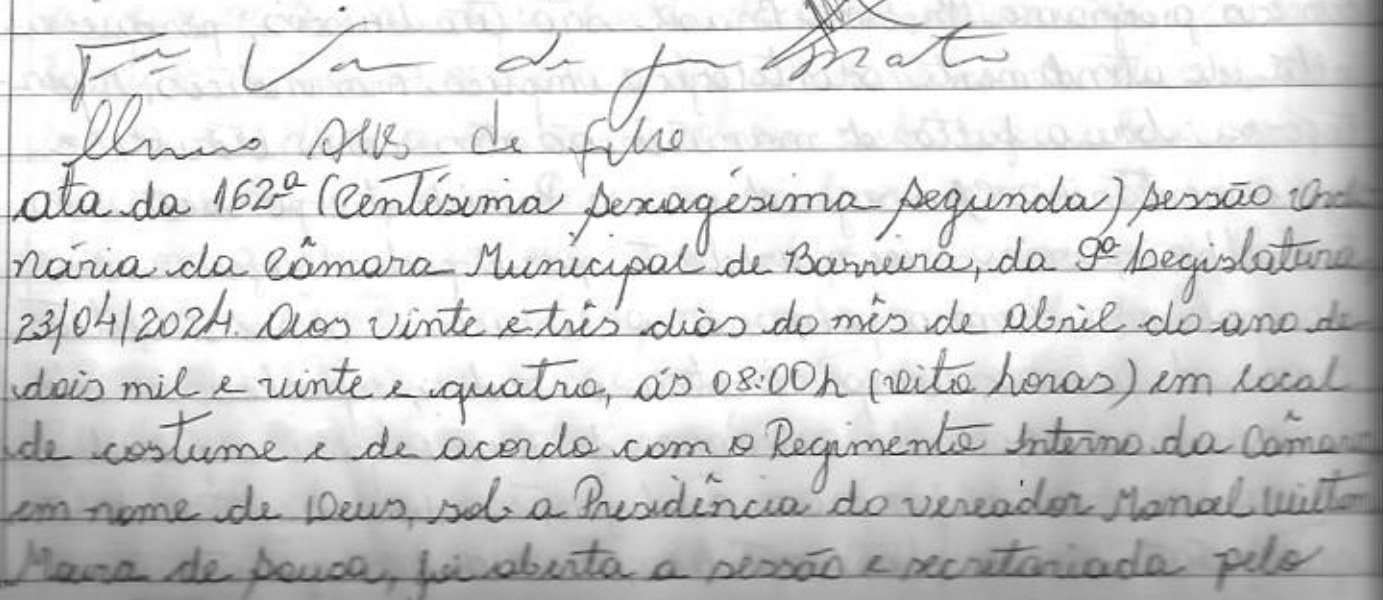 de
de filho
ata da 162ª (Centésima sexagésima segunda) sessão Ordi
nária da Câmara Municipal de Barreira, da 9ª Legislatura
23/04/2024. Aos vinte e três dias do mês de Abril do ano de
dois mil e vinte e quatro, ás 08:00h (oito horas) em local
de costume e de acordo com o Regimento Interno da Câmara
em nome de Deus, sob a Presidência do vereador Manoel Wilton
de Sousa, foi aberta a sessão e secretariada pelo